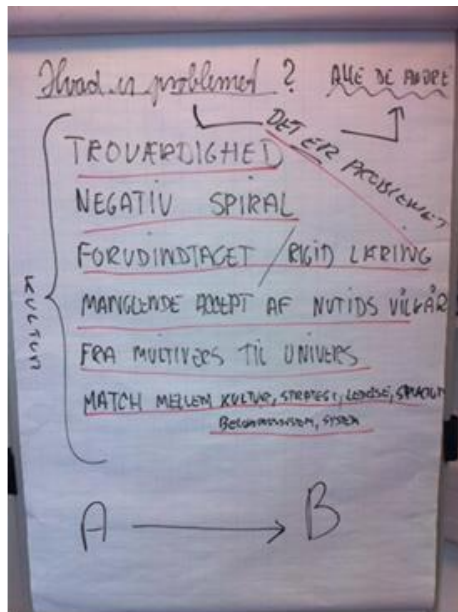 Hvad er problemet ?
ALLE DE ANDRE
DET ER PROBLEMET
TROVÆRDIGHED
NEGATIV SPIRAL
FORUDINDTAGET / RIGID LÆRING
MANGLENDE ACCEPT AF NUTIDS VILKÅR
FRA MULTIVERS TIL UNIVERS
MATCH MELLEM KULTUR, STRATEGI, LEDELSE,
SYSTEM
KULTUR
A → B